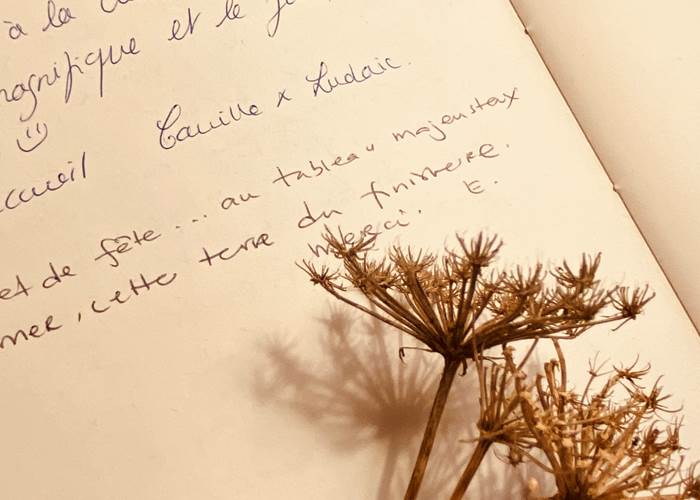 à la
magnifique et le
accueil Camille x Ludaic.
et de fête ... au tableau majeusteux
mer, cette terre du finistere.
Merci. E.